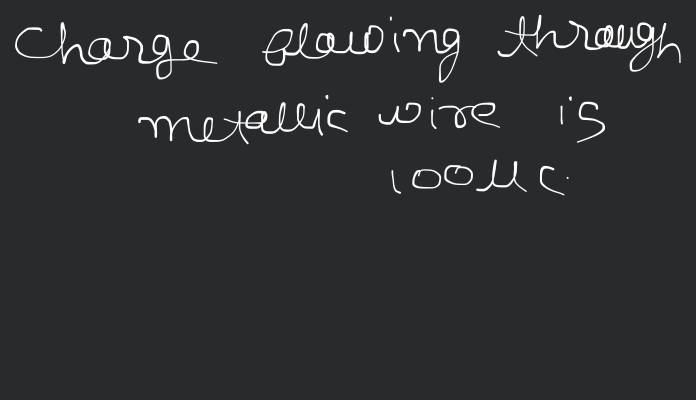 Charge flowing through
metallic wire is
100 μC.